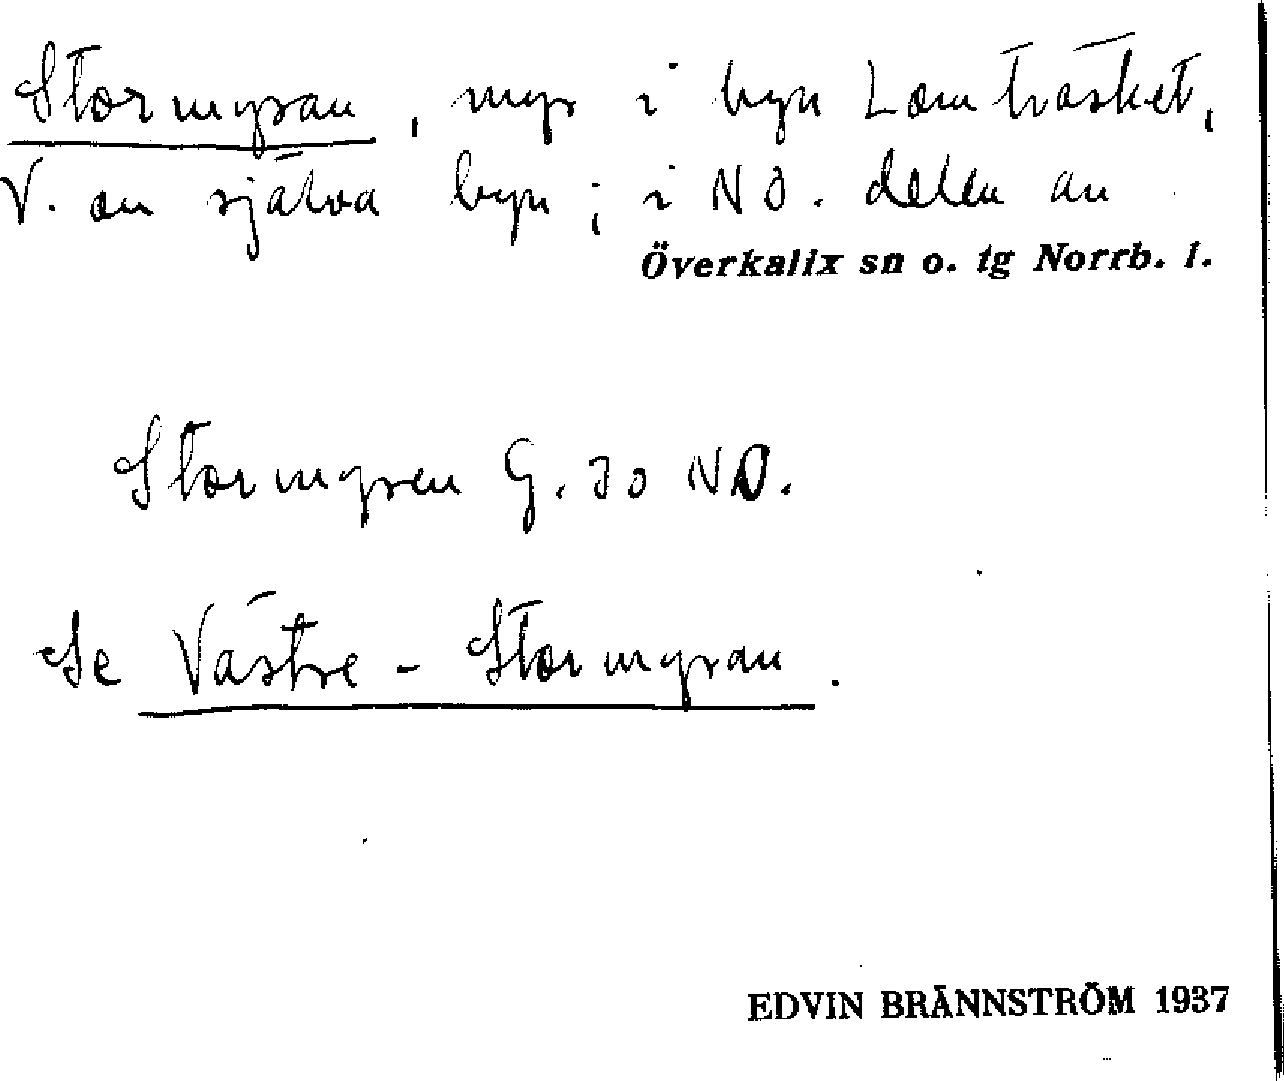 Stormyran, myr i byn Lomträsket,
V. om själva byn; i NO. delen av
Överkalix sn o. tg Norrb. l.
Stormyren G. 30 NO.
Se Västre-Stormyran.
EDVIN BRÄNNSTRÖM 1937